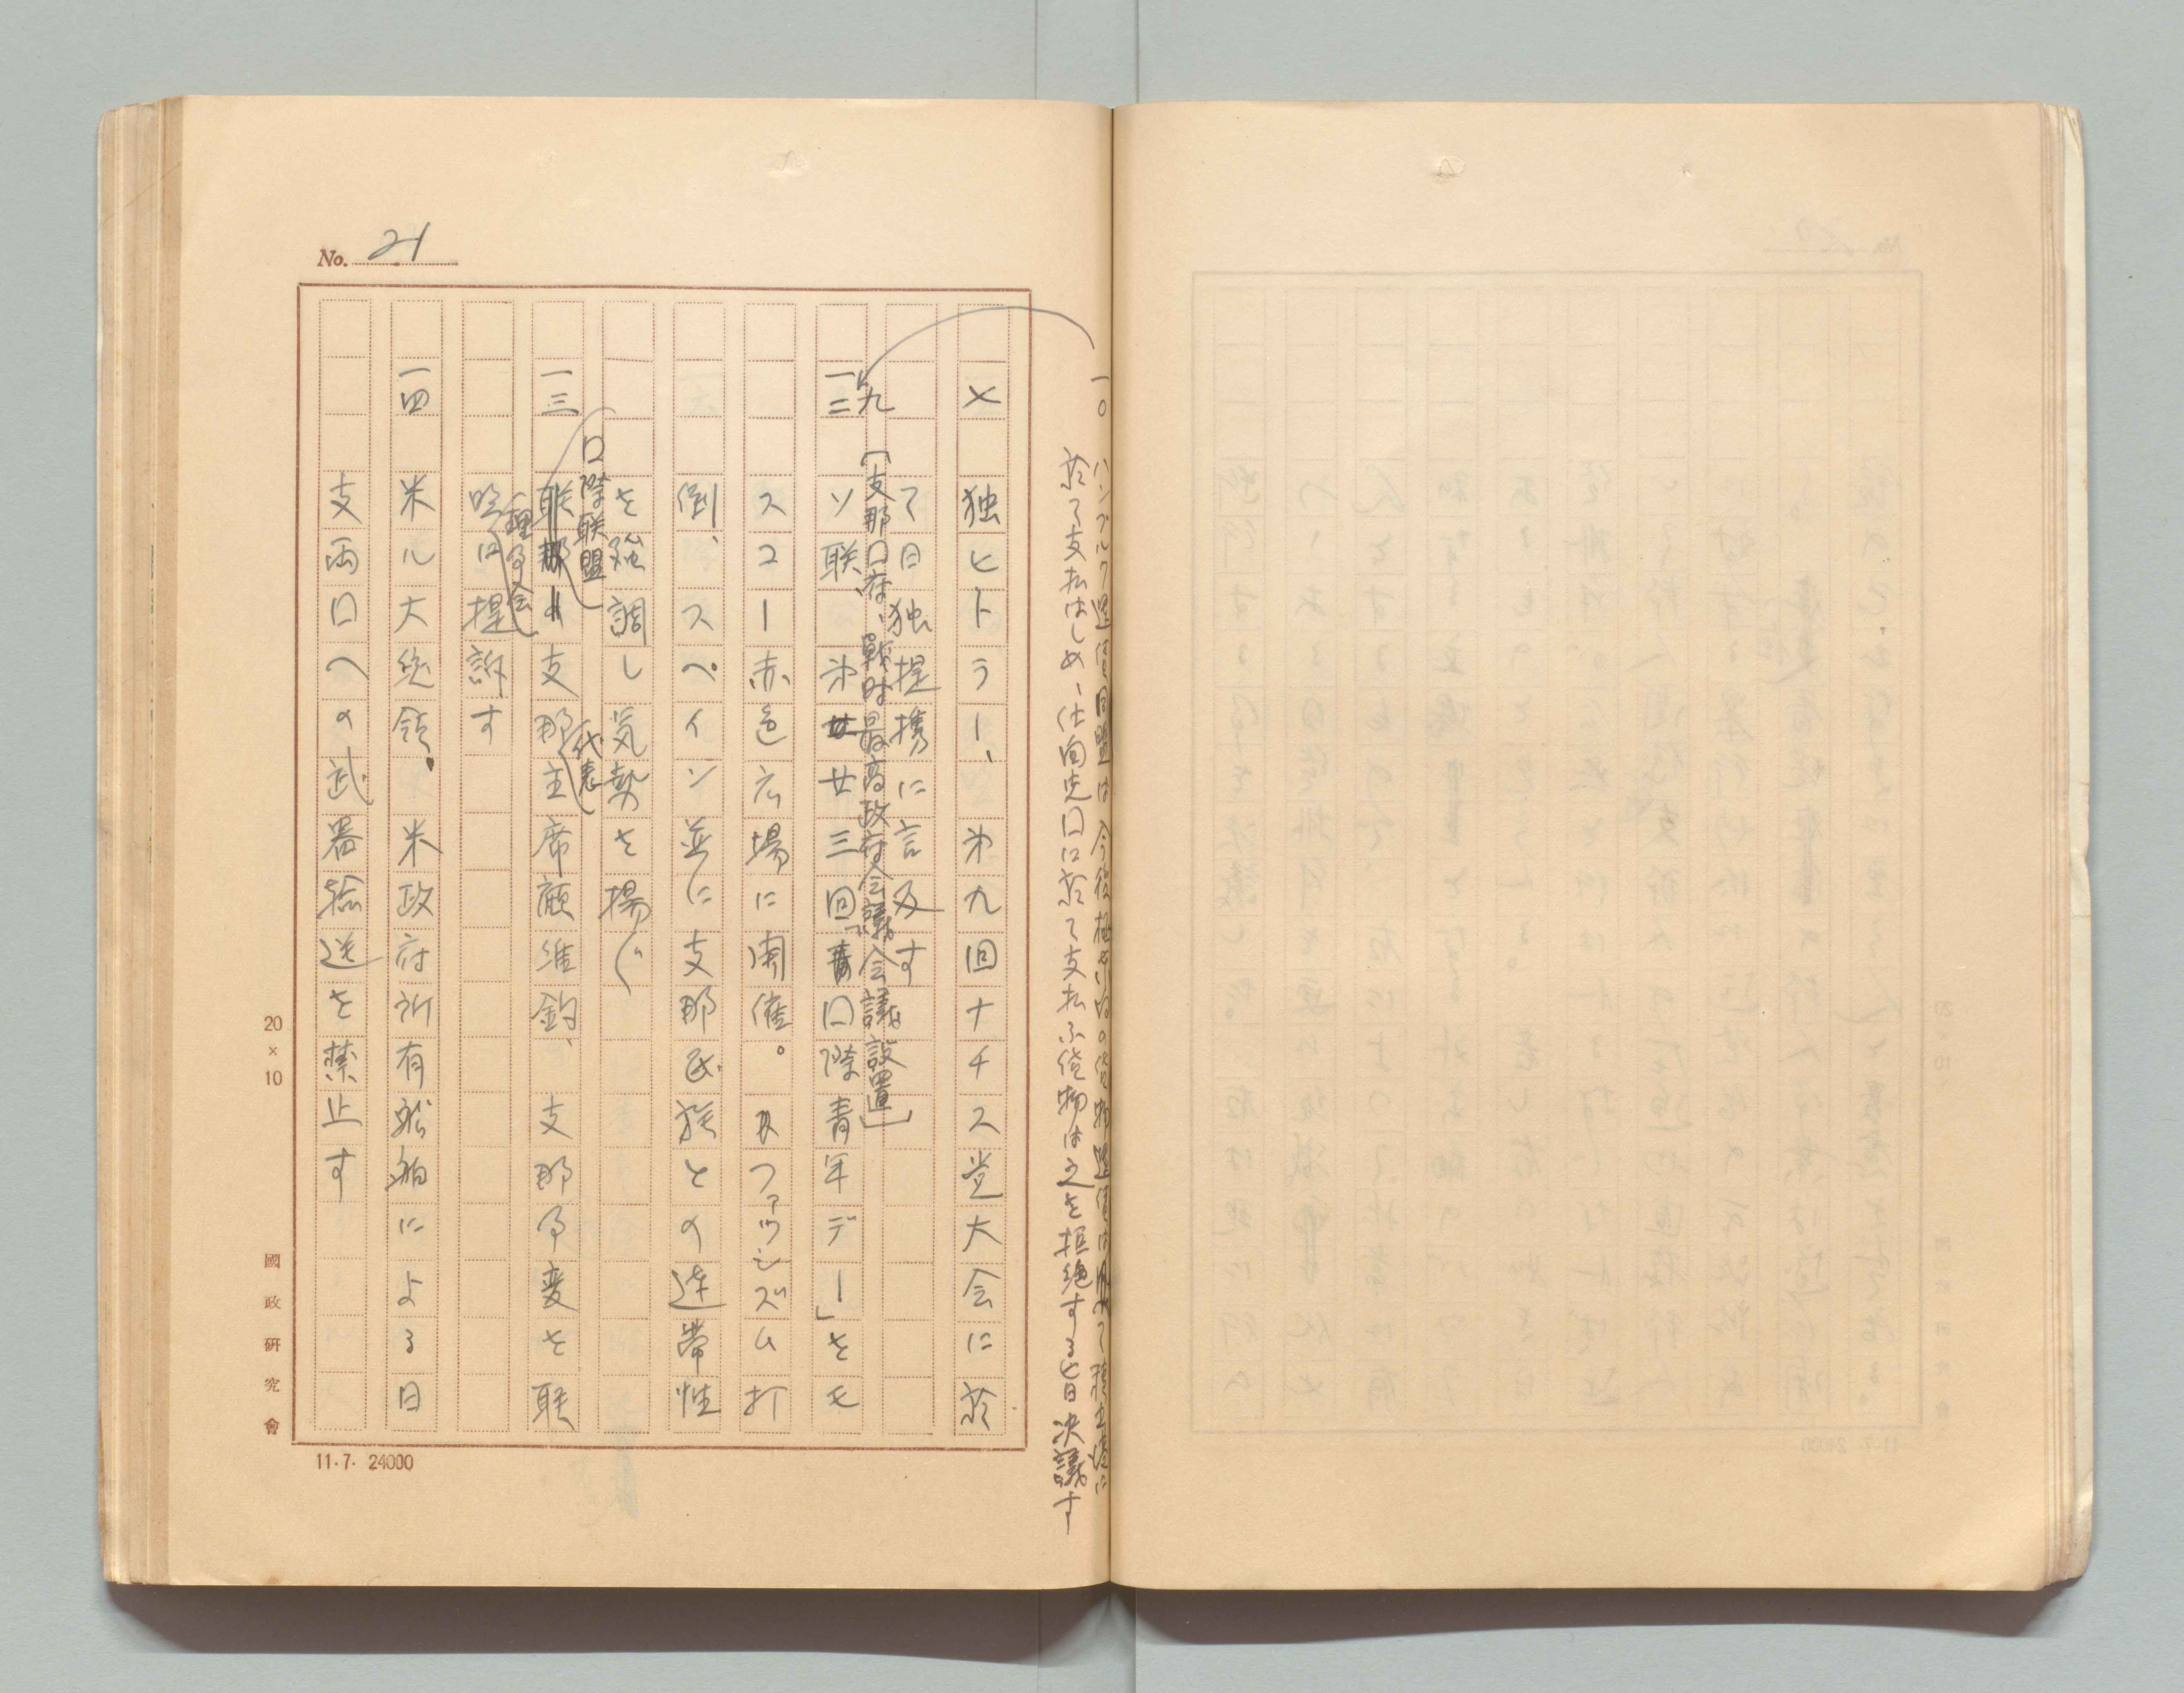 No. 21
一〇 ハンブルク運信同盟は今後極東向の貨物運信は凡て積出港に
於て支払はしめ、仕向先口に於て支払ふ貨物は之を拒絶する旨決議す
七 独ヒトラー、第九回ナチス党大会に於
て日独提携に言及す
九 [支那口府、戦時最高政府会議会議設置]
一二 ソ联 第廿三回「口際青年デー」をモ
スコー赤色広場に開催。ファッシズム打
倒、スペイン並に支那民族との連帯性
を強調し気勢を揚ぐ
一三 口際联盟支那代表主席顧維鈞、支那事変を联
盟理事会に提訴す
一四 米ル大統領、米政府所有船舶による日
支両口への武器輸送を禁止す
20×10
國政研究會
11.7. 24000